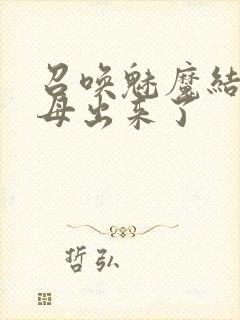 召唤魅魔结
母出来了
哲弘